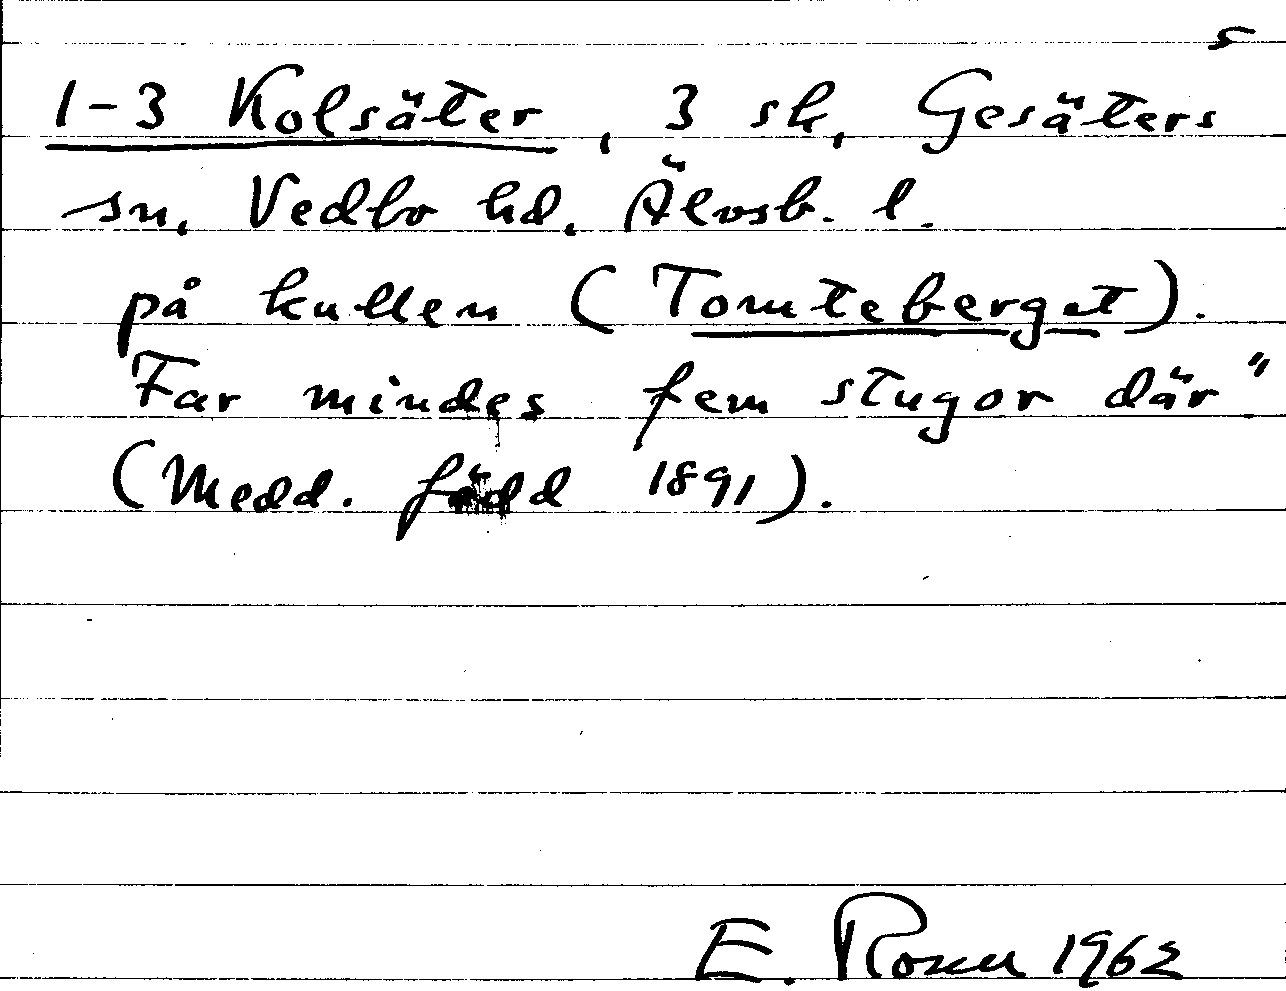 5
1-3 Kolsäter, 3 sk, Gesäters
sn, Vedbo hd. Älvsb. l.
på kullen (Tomteberget).
Far mindes fem stugor där"
(Medd. född 1891).
E. Rosell 1962